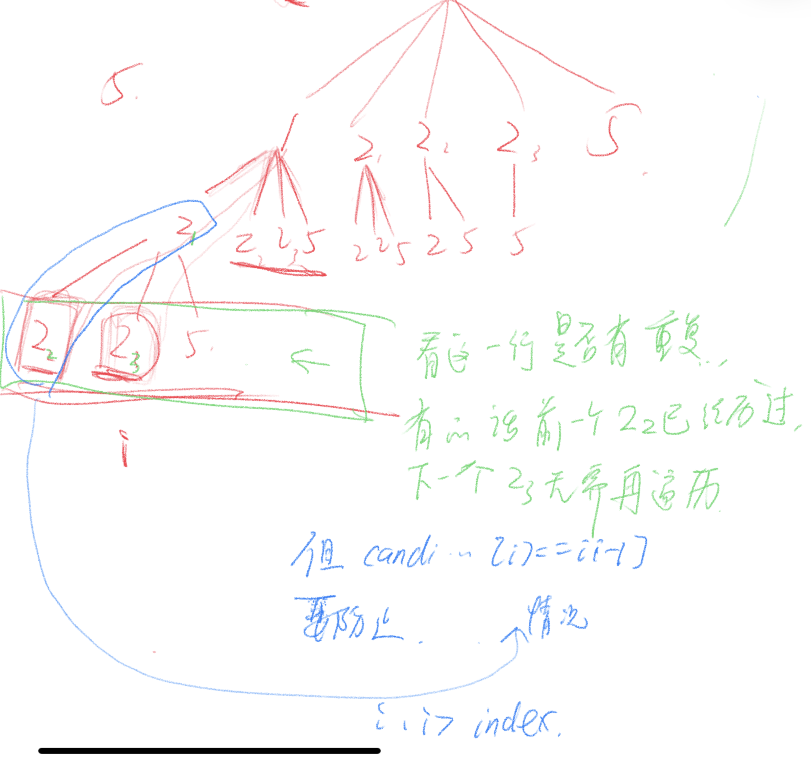 5.
1 2₁ 2₂ 2₃ 5
2₁ 2₂ 2₃ 5 2 2 5 2 5 5
2₂ 2₃ 5
看这一行是否有重复,
有的话前一个2₂已经历过,
下一个2₃无需再遍历
i
但 candi... [i]==[i-1]
要防止 情况
i, i > index.